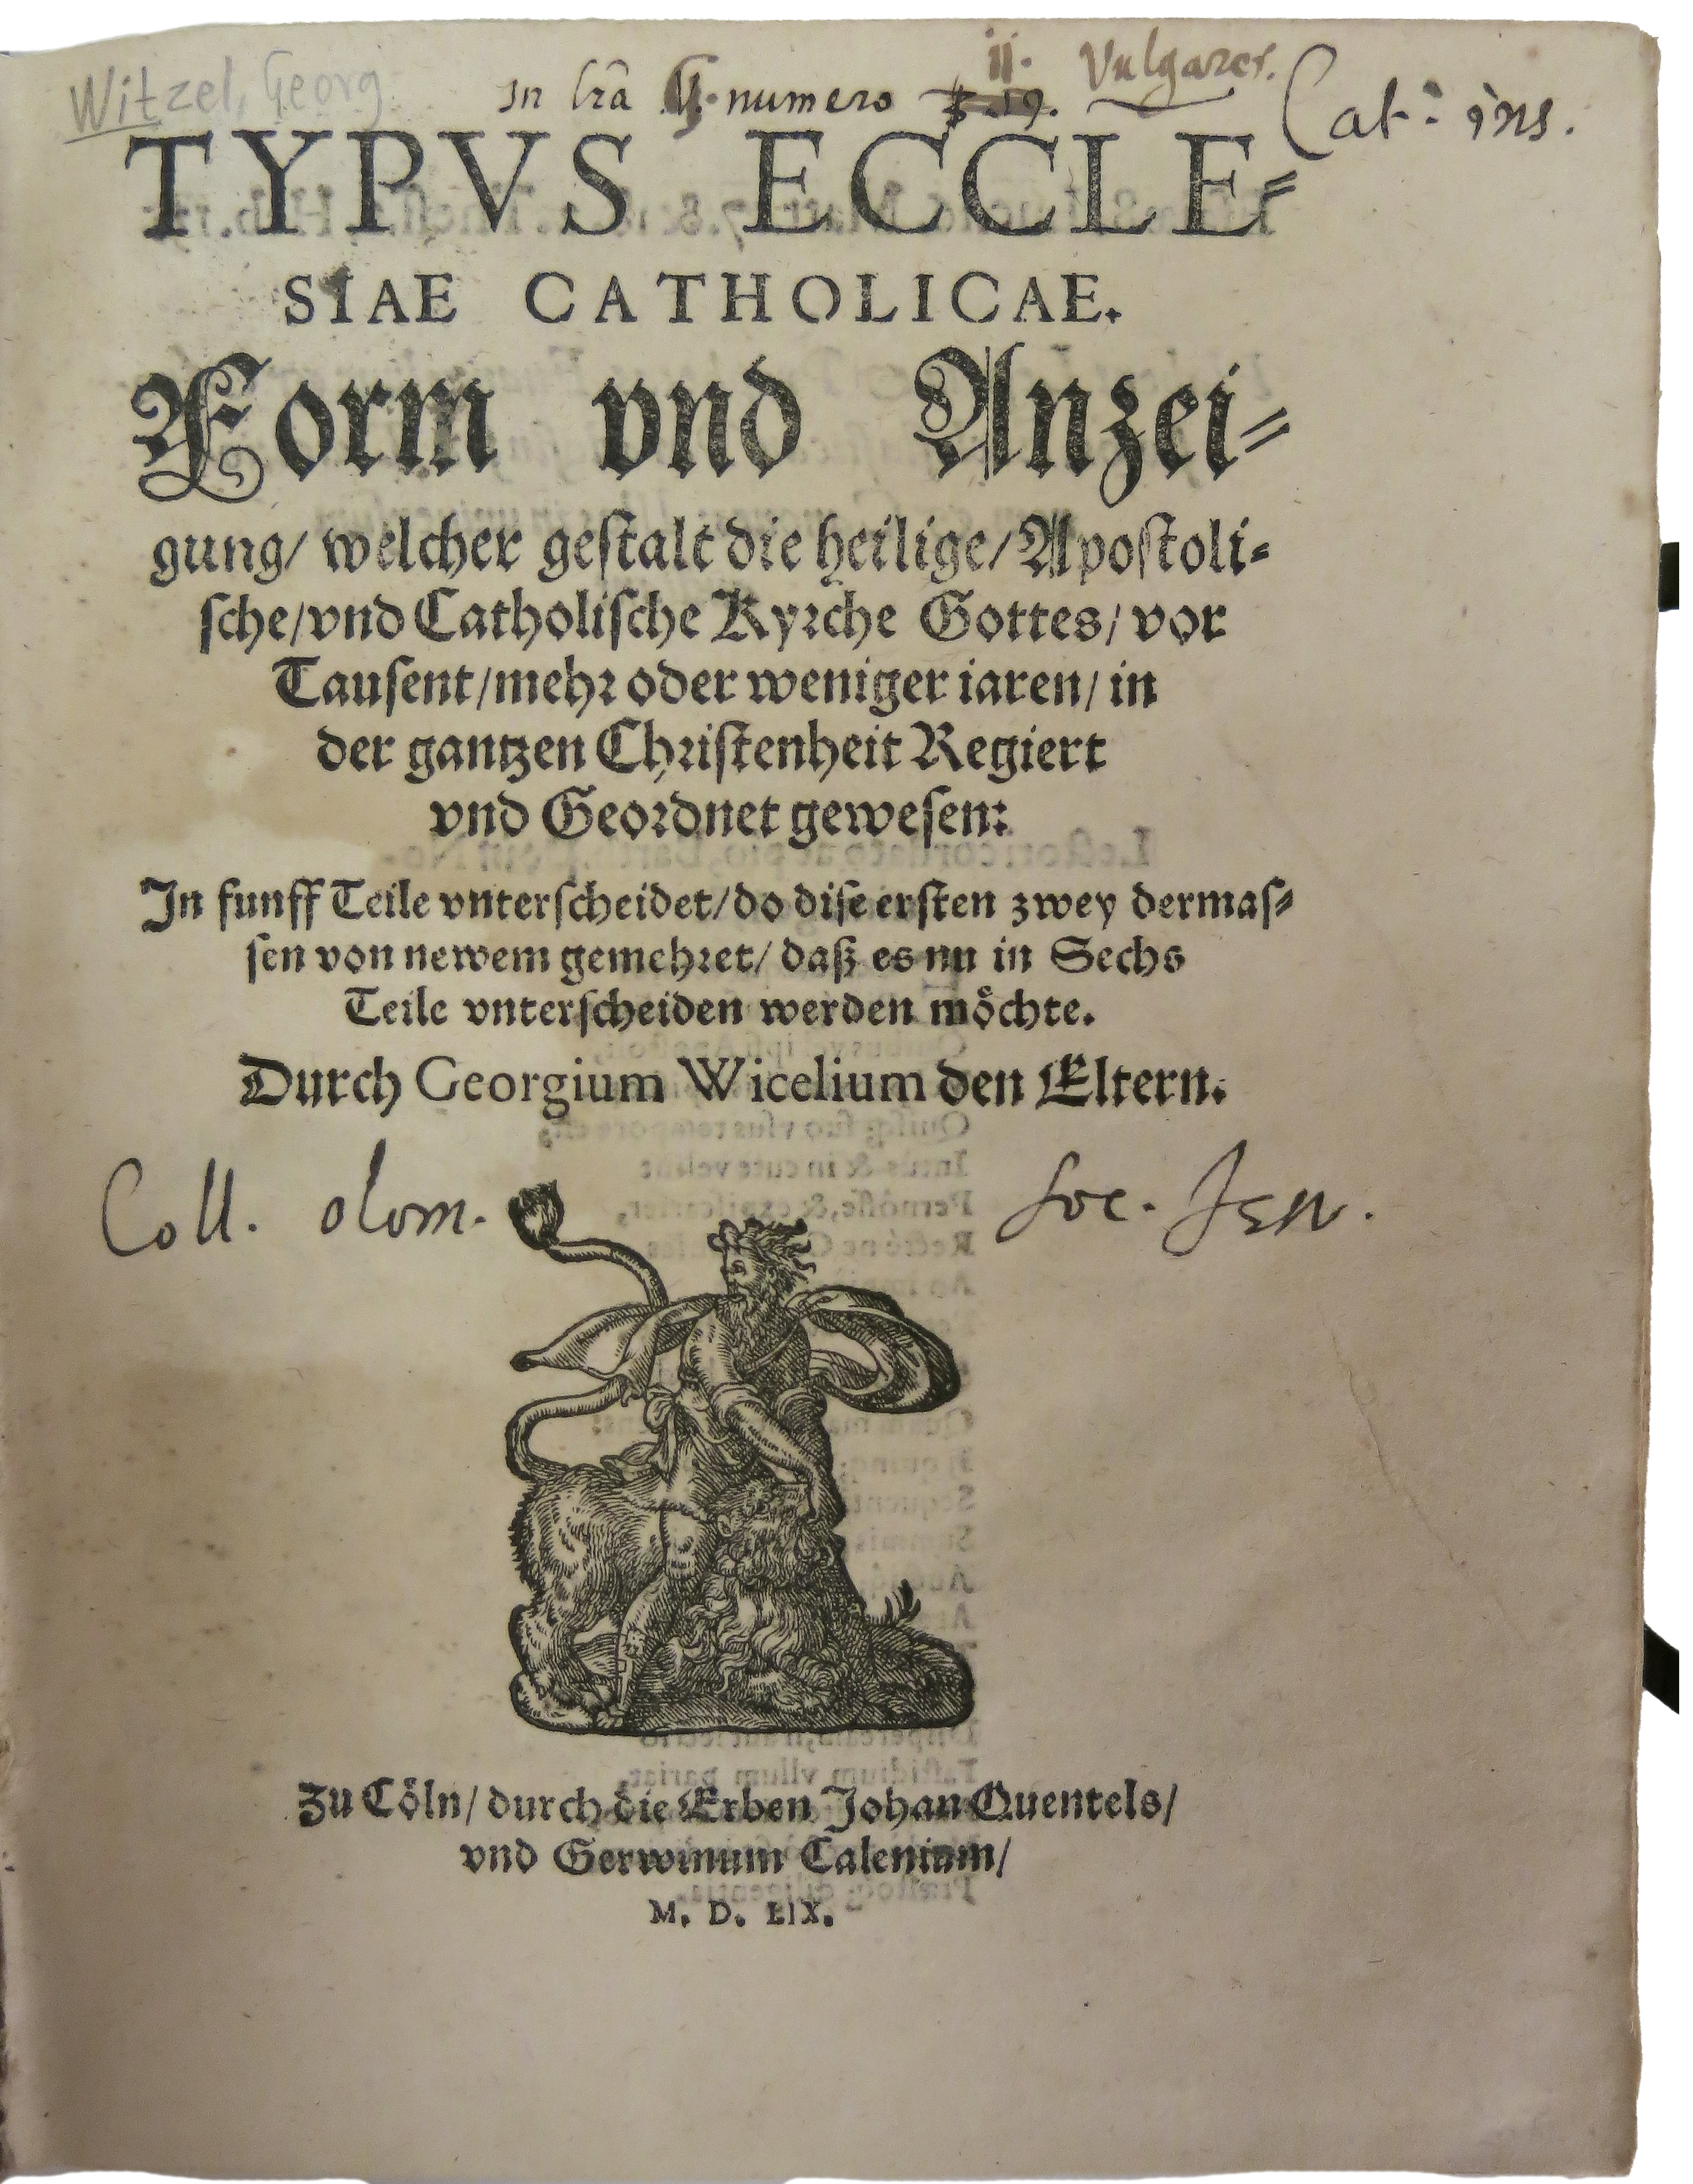 Witzel, Georg
In lrã numero 19. ii. Vulgares. Cat: ins.
TYPVS ECCLE=
SIAE CATHOLICAE.
Form vnd Anzei=
gung/ welcher gestalt die heilige/ Apostoli=
sche/ vnd Catholische Kyrche Gottes/ vor
Tausent/ mehr oder weniger iaren/ in
der gantzen Christenheit Regiert
vnd Geordnet gewesen:
In funff Teile vnterscheidet/ do dise ersten zwey dermas=
sen von newem gemehret/ daß es nu in Sechs
Teile vnterscheiden werden möchte.
Durch Georgium Wicelium den Eltern.
Coll. olom. Soc. Jesu.
Zu Cöln/ durch die Erben Johan Quentels/
vnd Gerwinum Calenium/
M. D. LIX.